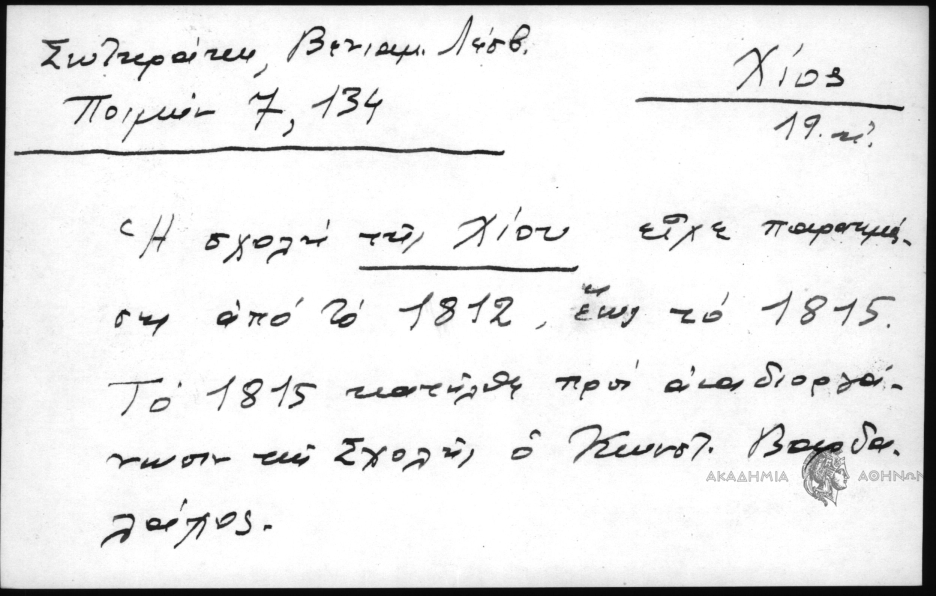 Σωτηράκη, Βενιαμ. Λέσβ.
Ποιμήν 7, 134
Χίος
19. αἰ.
Ἡ σχολή τῆς Χίου εἶχε παρακμά-
ση ἀπό τό 1812, ἕως τό 1815.
Τό 1815 κατῆλθε πρός ἀναδιοργά-
νωσιν τῆς Σχολῆς ὁ Κωνστ. Βαρδα-
λάχος.
ΑΚΑΔΗΜΙΑ ΑΘΗΝΩΝ